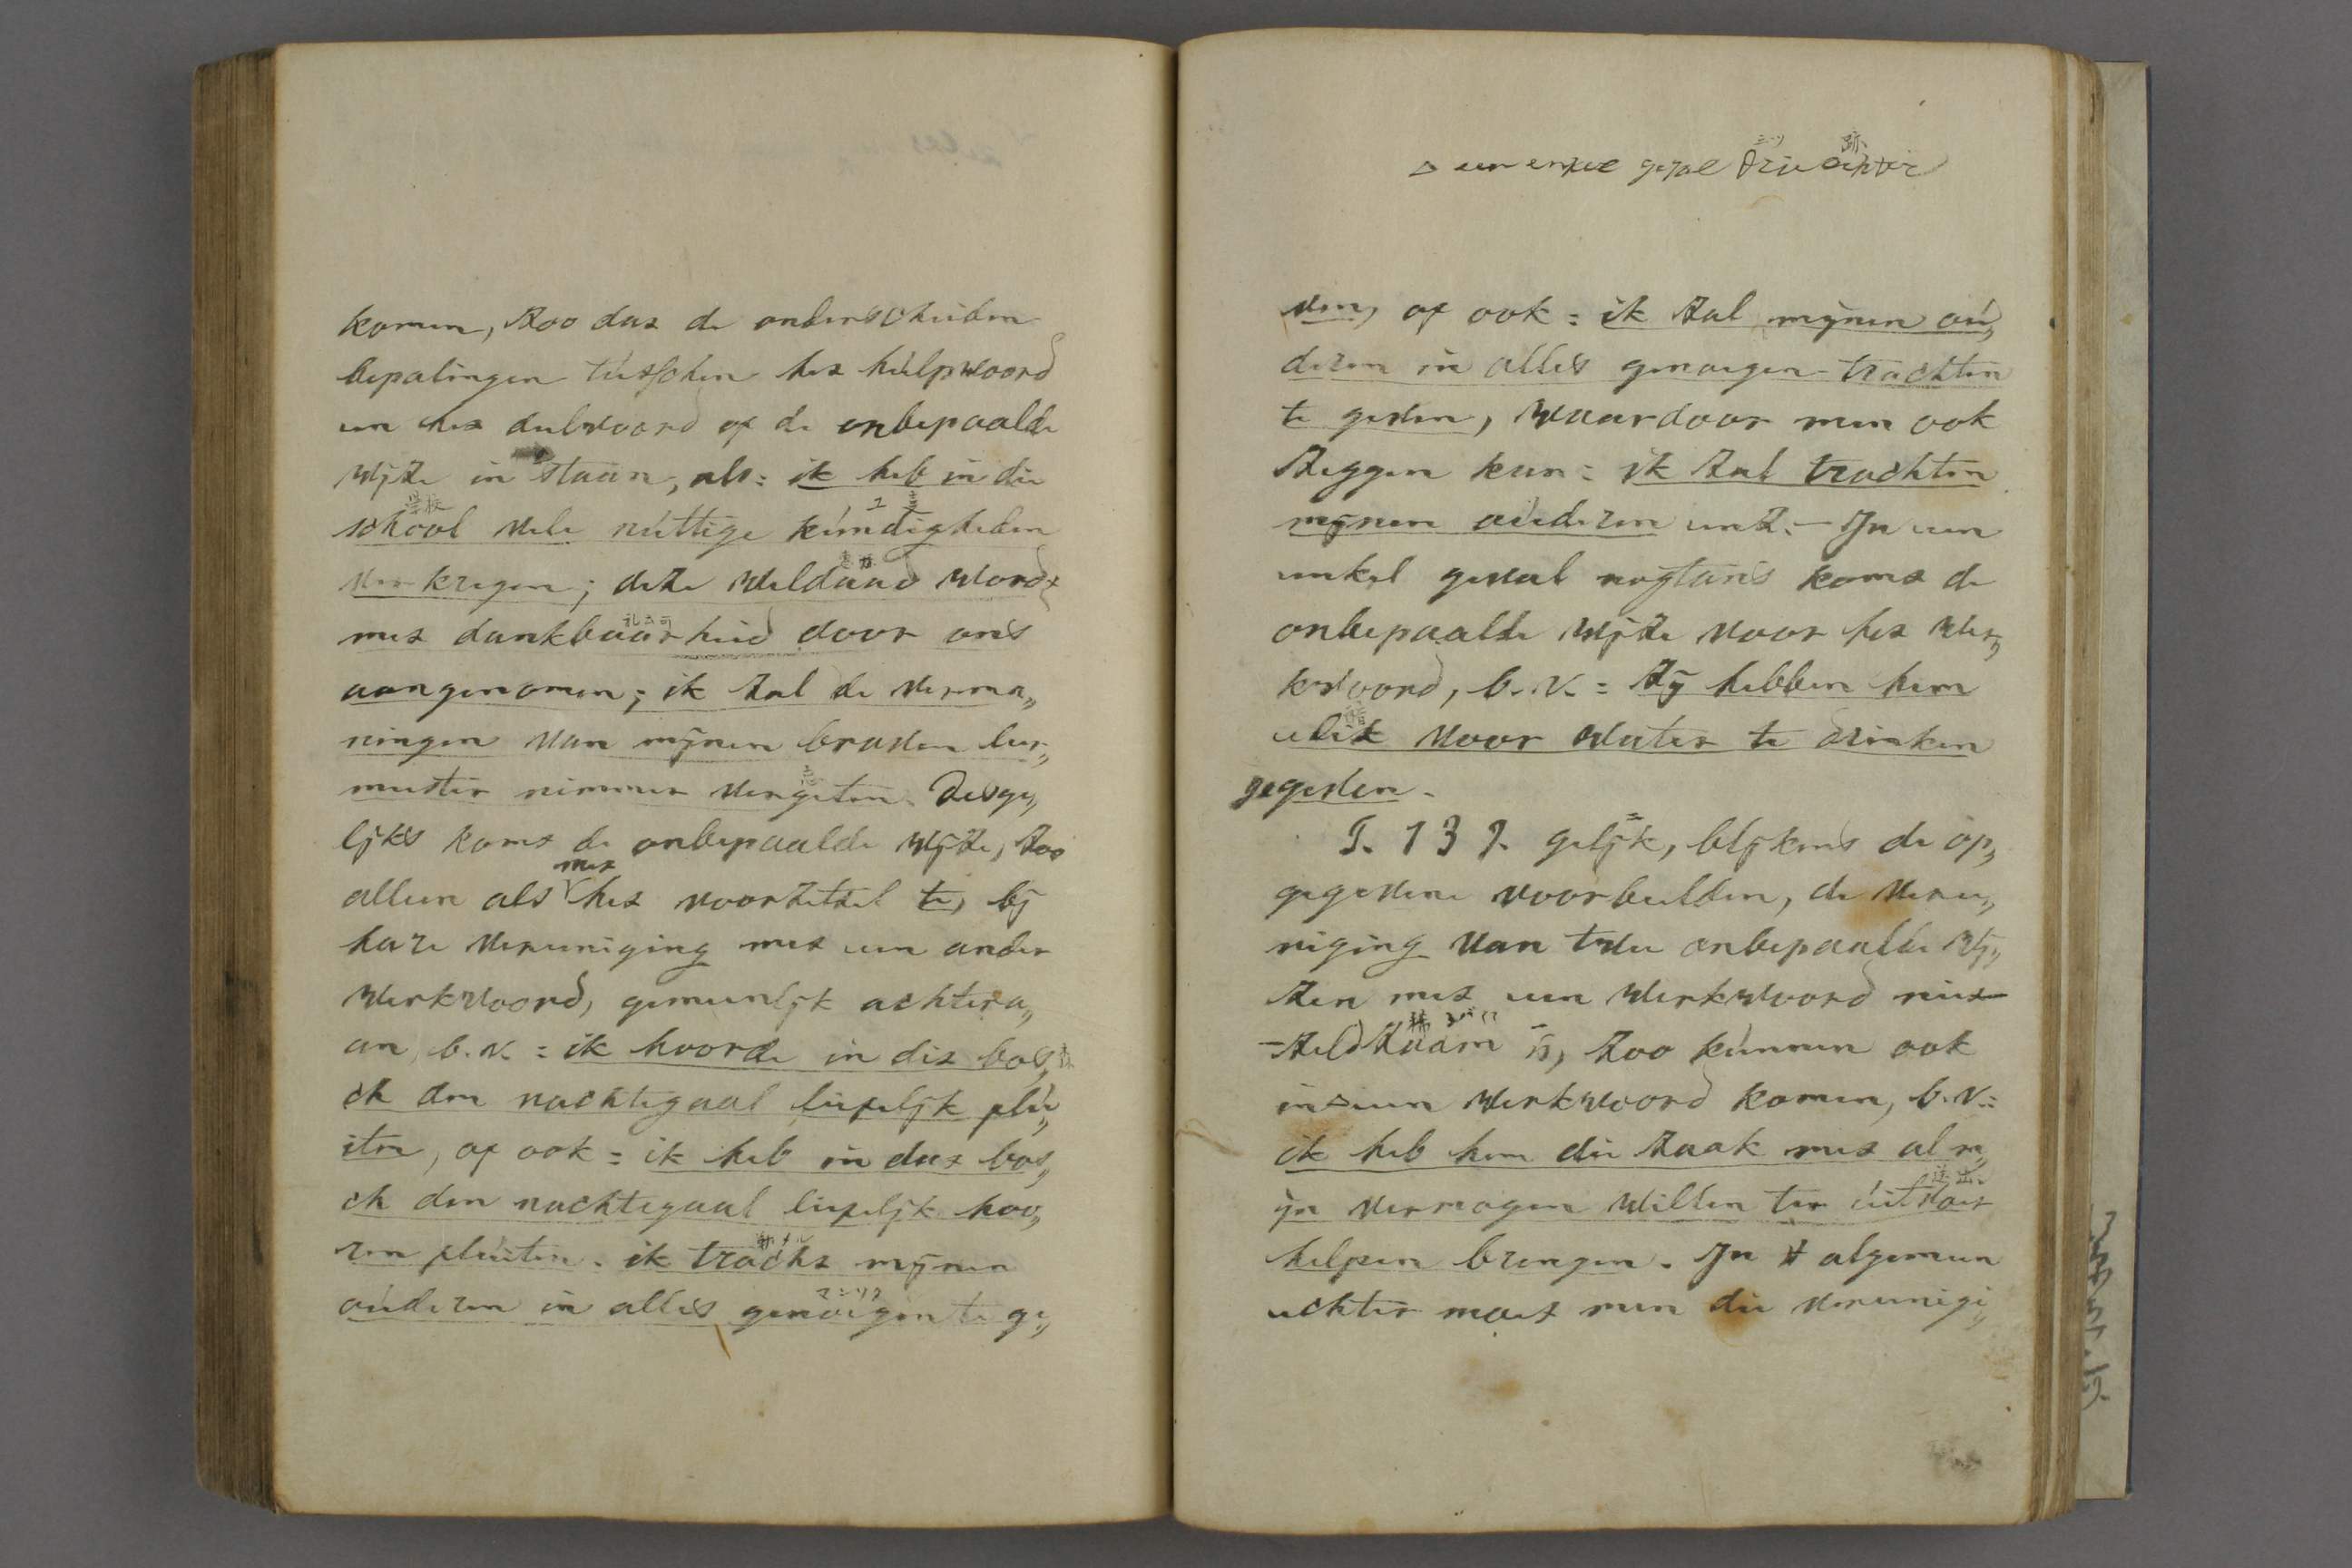 komen, zoo dat de onderscheiden
bepalingen tusschen het hulpwoord
en het deelwoord of de onbepaalde
wijze in staan, als: ik heb in die
学校
school vele nuttige kundigheden
verkregen; deze weldaad wordt
met dankbaarheid door ons
aangenomen; ik zal de verma„
ningen van mijnen braven leer„
meester nimmer vergeten. Desge„
lijks komt de onbepaalde wijze, zoo
met
alleen als het voorzetsel te, bij
hare vereeniging met een ander
werkwoord, gemeenlijk achtera„
an, b.v. = ik hoorde in dit bos„
ch den nachtegaal liefelijk flu„
iten, of ook = ik heb in dat bos„
ch den nachtegaal liefelijk hoo„
ren fluiten. ik tracht mijnen
ouderen in alles genoegen te ge„
△ een enkel geval drie achter
ven, of ook = ik zal mijnen ou„
deren in alles genoegen trachten
te geven, waardoor men ook
zeggen kan = ik zal trachten
mijnen ouderen enz. – In een
enkel geval nogtans komt de
onbepaalde wijze voor het wer„
kwoord, b.v. = zij hebben hem
edik voor water te drinken
gegeven.
§. 139. gelijk, blijkens de op„
gegevene voorbeelden, de veree„
niging van twee onbepaalde wij„
zen met een werkwoord niet
zeldzaam is, zoo kunnen ook
in △ een werkwoord komen, b.v. =
ik heb hem die zaak met al m„
ijn vermogen willen ter uitvoer
helpen brengen. In 't algemeen
echter moet men die vereenigi„